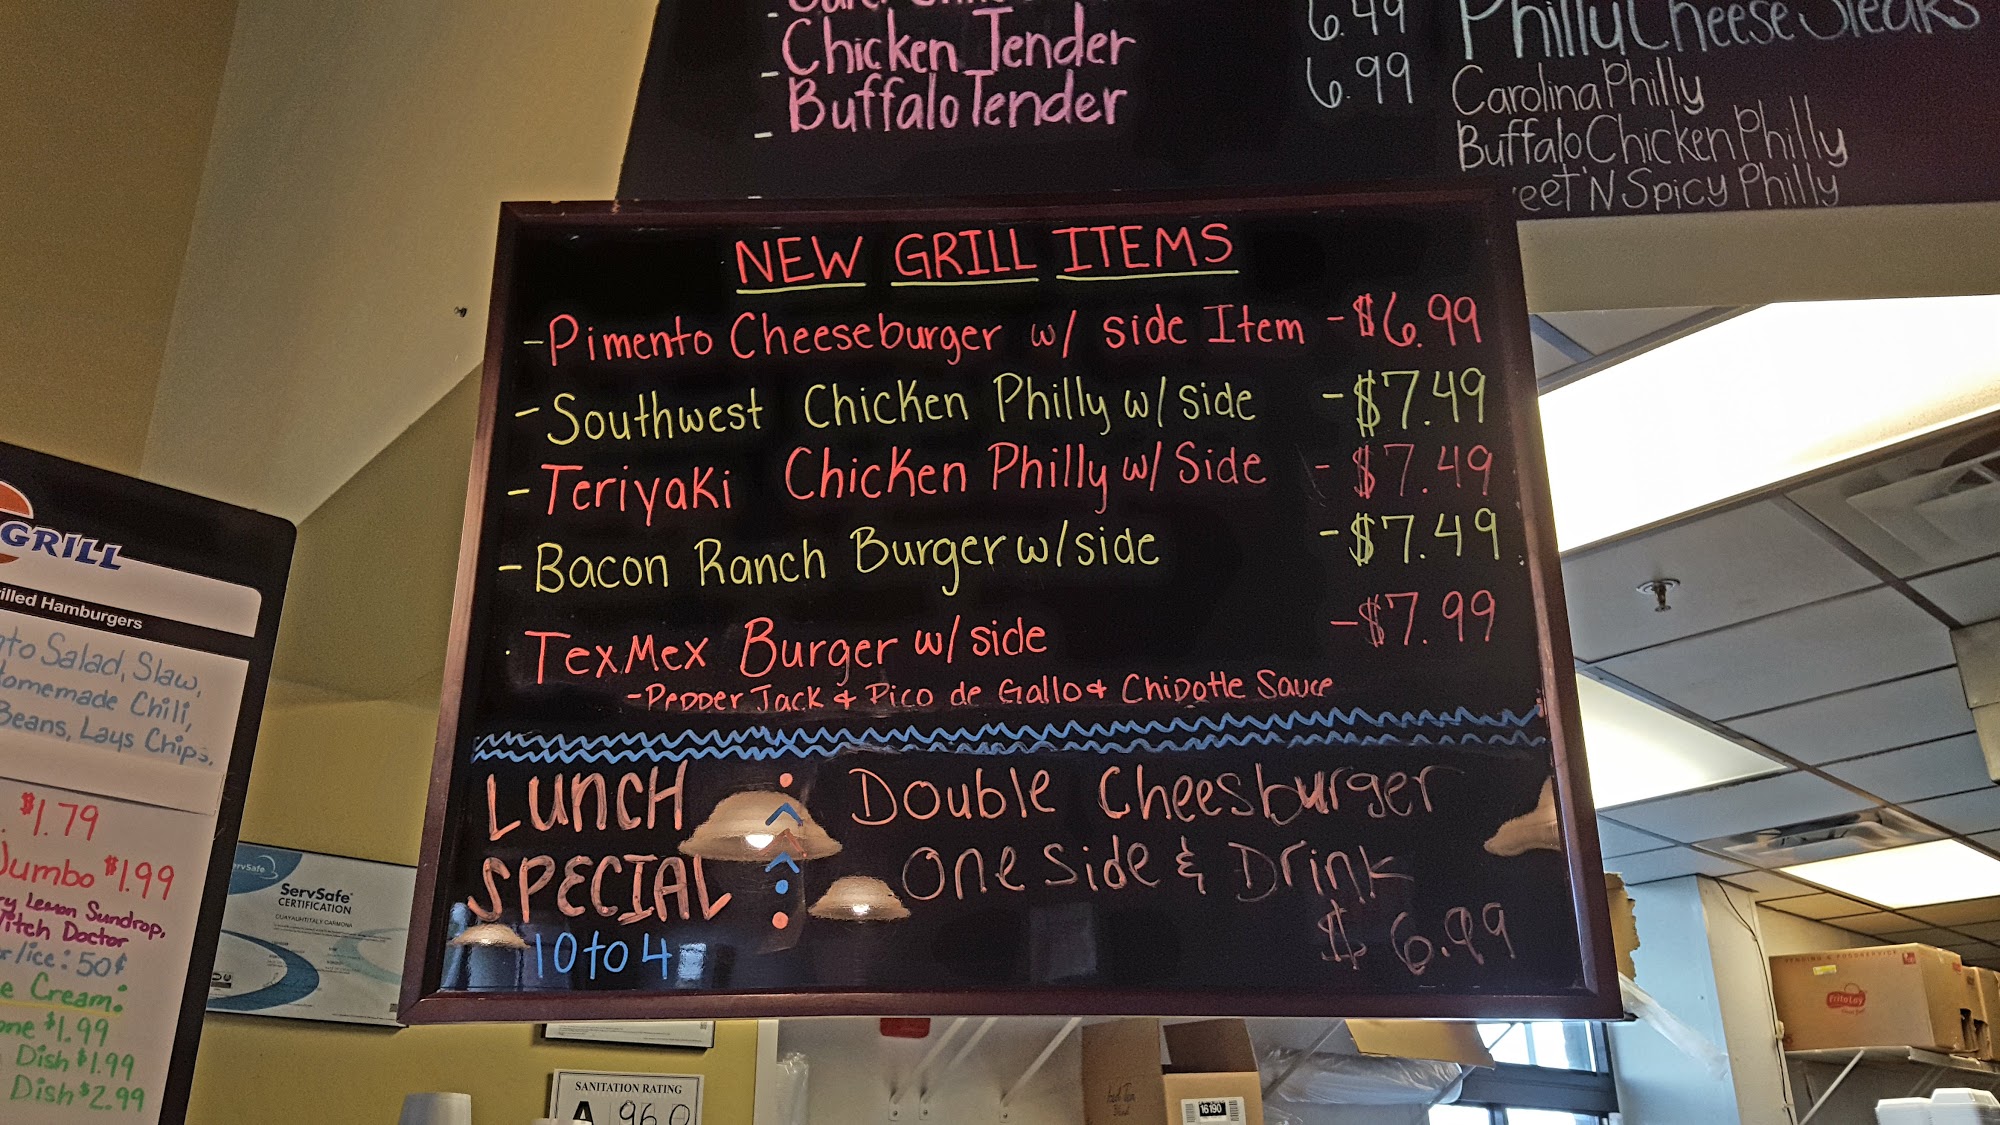 Chicken Tender 6.49
Buffalo Tender 6.99
Philly Cheese Steaks
Carolina Philly
Buffalo Chicken Philly
'N Spicy Philly
NEW GRILL ITEMS
- Pimento Cheeseburger w/ side Item - $6.99
- Southwest Chicken Philly w/ side - $7.49
- Teriyaki Chicken Philly w/ Side - $7.49
- Bacon Ranch Burger w/ side - $7.49
TexMex Burger w/ side - $7.99
- Pepper Jack & Pico de Gallo & Chipotle Sauce
LUNCH SPECIAL
10 to 4
Double Cheesburger
One Side & Drink
$6.99
GRILL
Hamburgers
Salad, Slaw,
Chili,
Beans, Lays Chips,
$1.79
Jumbo $1.99
Lemon Sundrop,
Doctor
/ice: 50¢
Cream:
$1.99
Dish $1.99
Dish $2.99
ServSafe
ServSafe
CERTIFICATION
SANITATION RATING
A 96.0
16190
Frito Lay